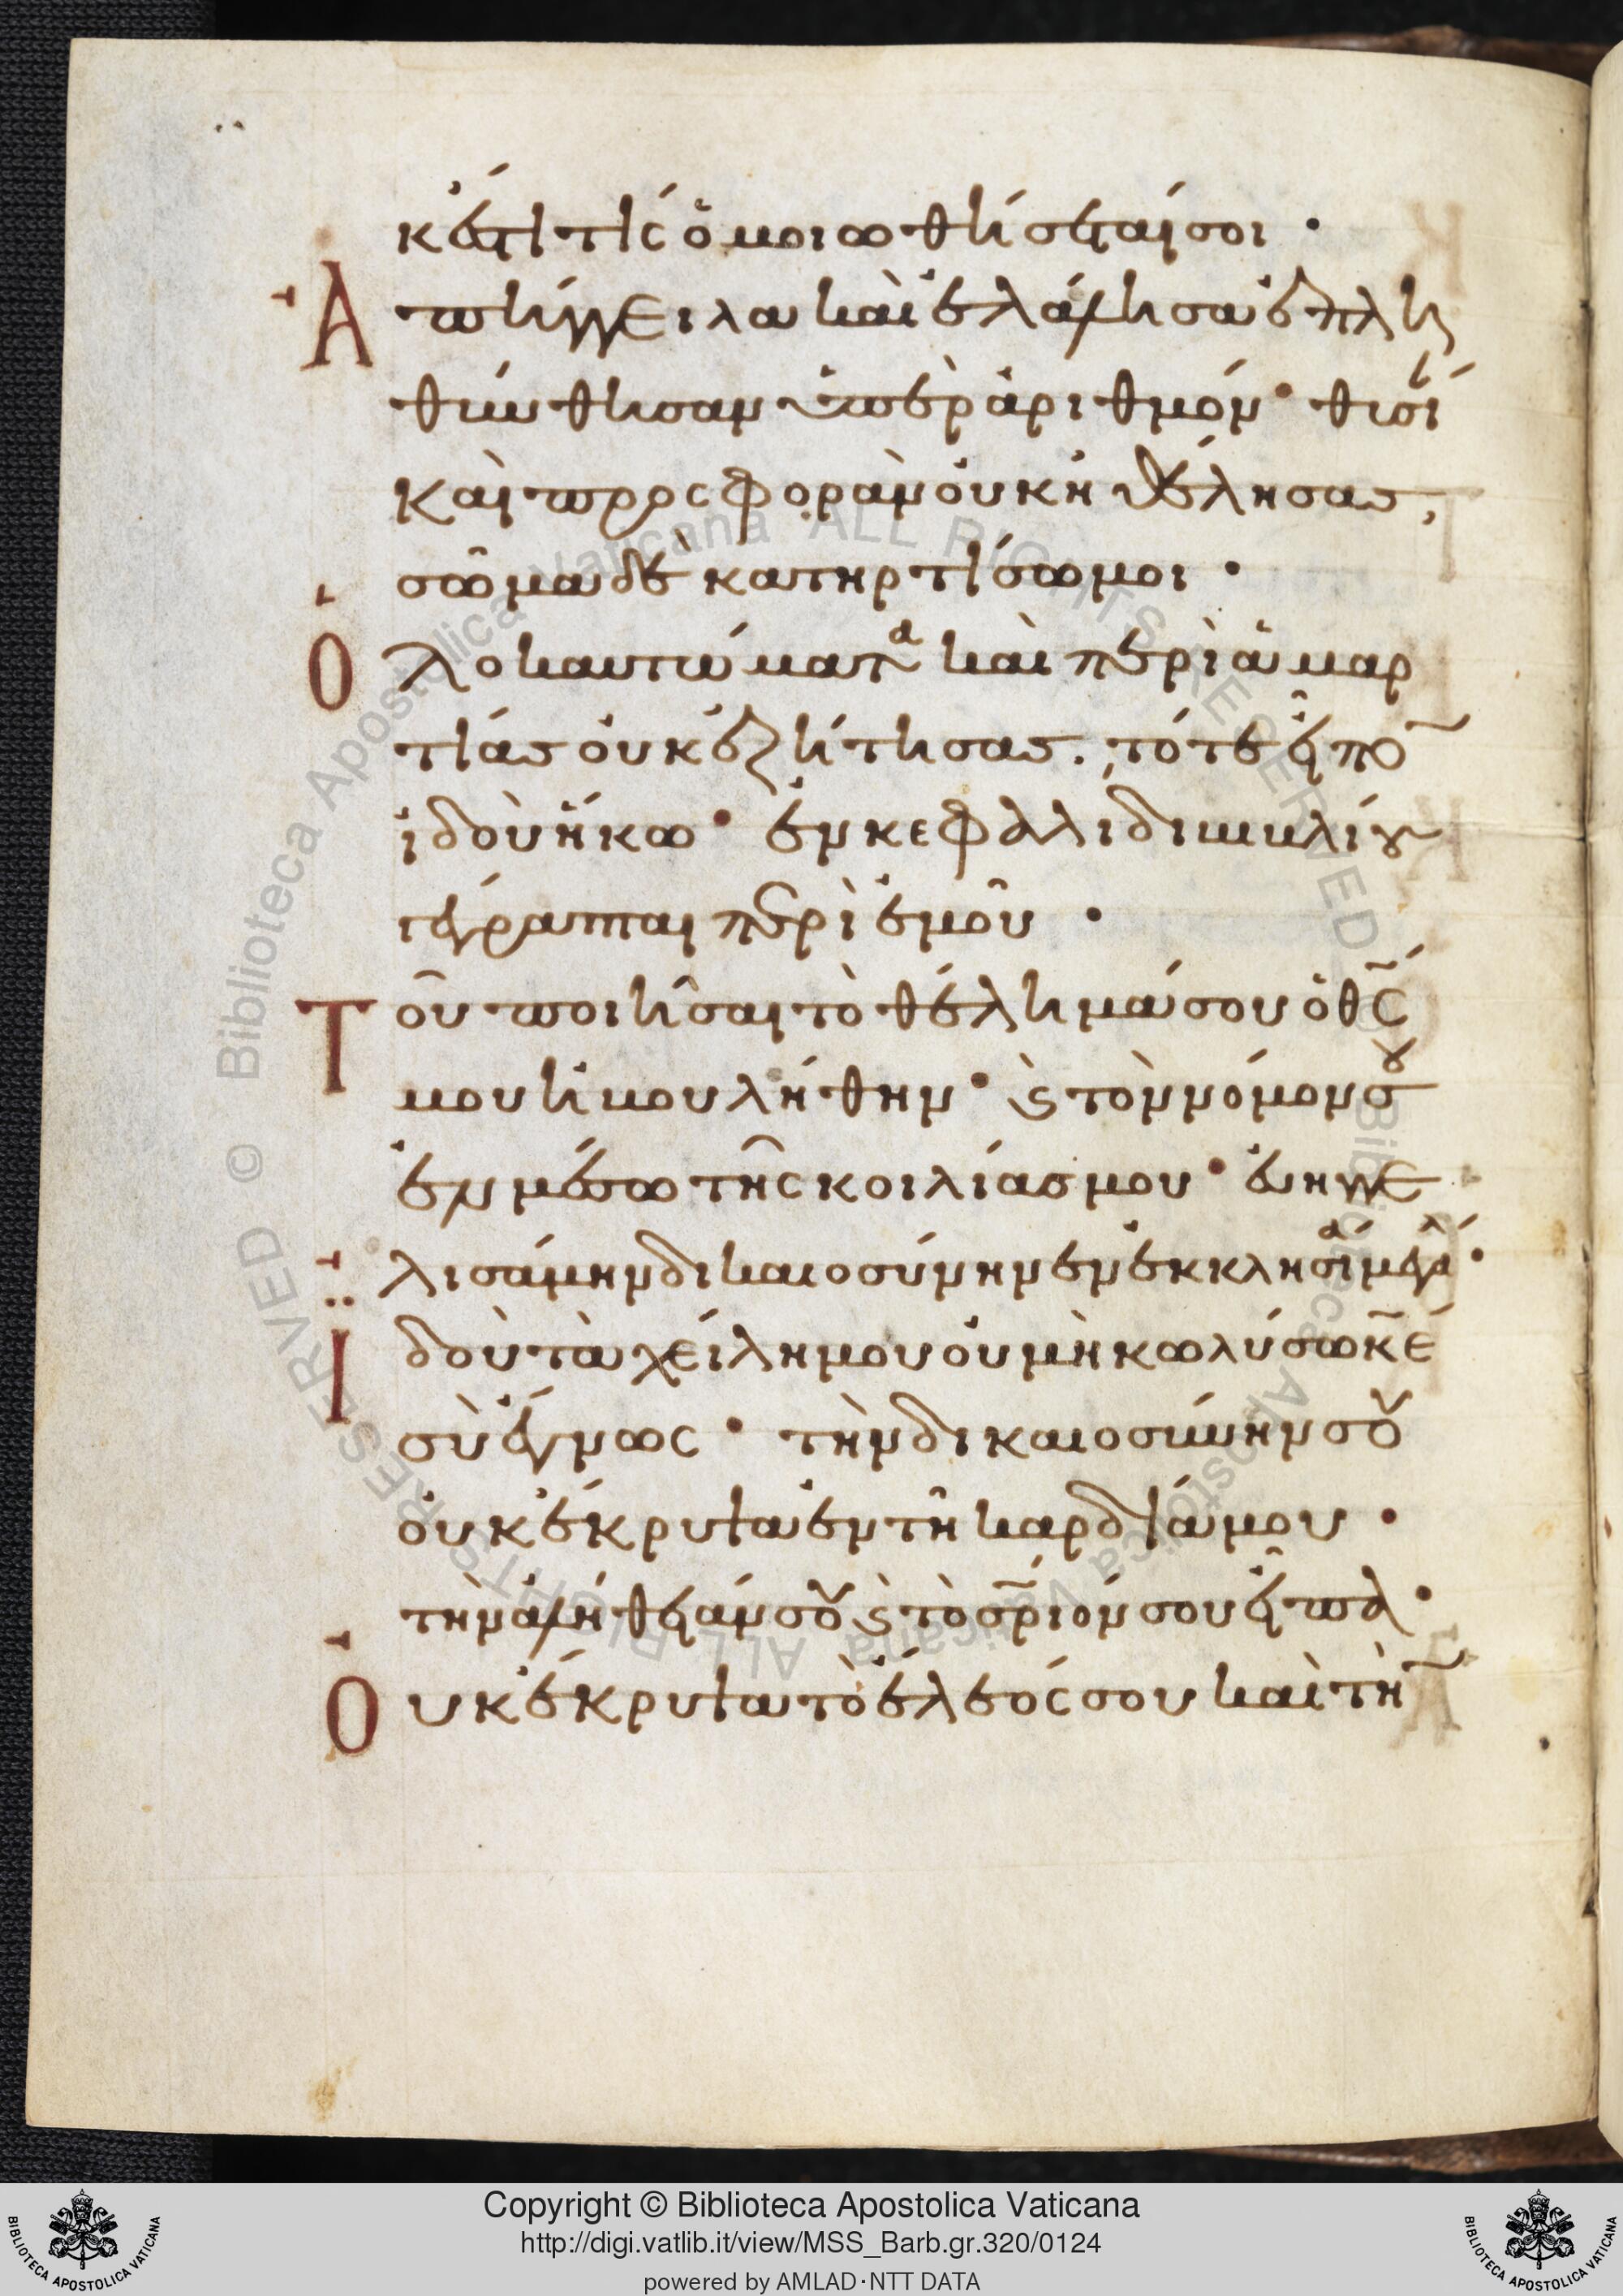 κ ἔστι τίς ὁμοιωθήσεταί σοι ·
Ἀπήγγειλα καὶ ἐλάλησα ἐπλη
θύνθησαν ὑπὲρ ἀριθμόν · θυσί
καὶ προσφορὰν οὐκ ἠθέλησας,
σῶμα δὲ κατηρτίσω μοι ·
Ὁλοκαυτώματα καὶ περὶ ἁμαρ
τίας οὐκ ἐζήτησας. τότε εἶπο
ἰδοὺ ἥκω · ἐν κεφαλίδι βιβλίου
γέγραπται περὶ ἐμοῦ ·
Τοῦ ποιῆσαι τὸ θέλημά σου ὁ θς
μου ἠβουλήθην · ϗ τὸν νόμον σου
ἐν μέσω τῆς κοιλίας μου · εὐηγγε
λισάμην δικαιοσύνην ἐν ἐκκλησία μεγάλ ·
Ἰδοὺ τὰ χείλη μου οὐ μὴ κωλύσω κε
σὺ ἔγνως · τὴν δικαιοσύνην σου
οὐκ ἔκρυψα ἐν τῆ καρδία μου ·
τὴν ἀλήθειάν σου ϗ τὸ σριόν σου εἶπα ·
Οὐκ ἔκρυψα τὸ ἔλεός σου καὶ τὴ
Copyright © Biblioteca Apostolica Vaticana
http://digi.vatlib.it/view/MSS_Barb.gr.320/0124
powered by AMLAD·NTT DATA
BIBLIOTECA APOSTOLICA VATICANA
BIBLIOTECA APOSTOLICA VATICANA
© Biblioteca Apostolica Vaticana ALL RIGHTS RESERVED
© Biblioteca Apostolica Vaticana ALL RIGHTS RESERVED